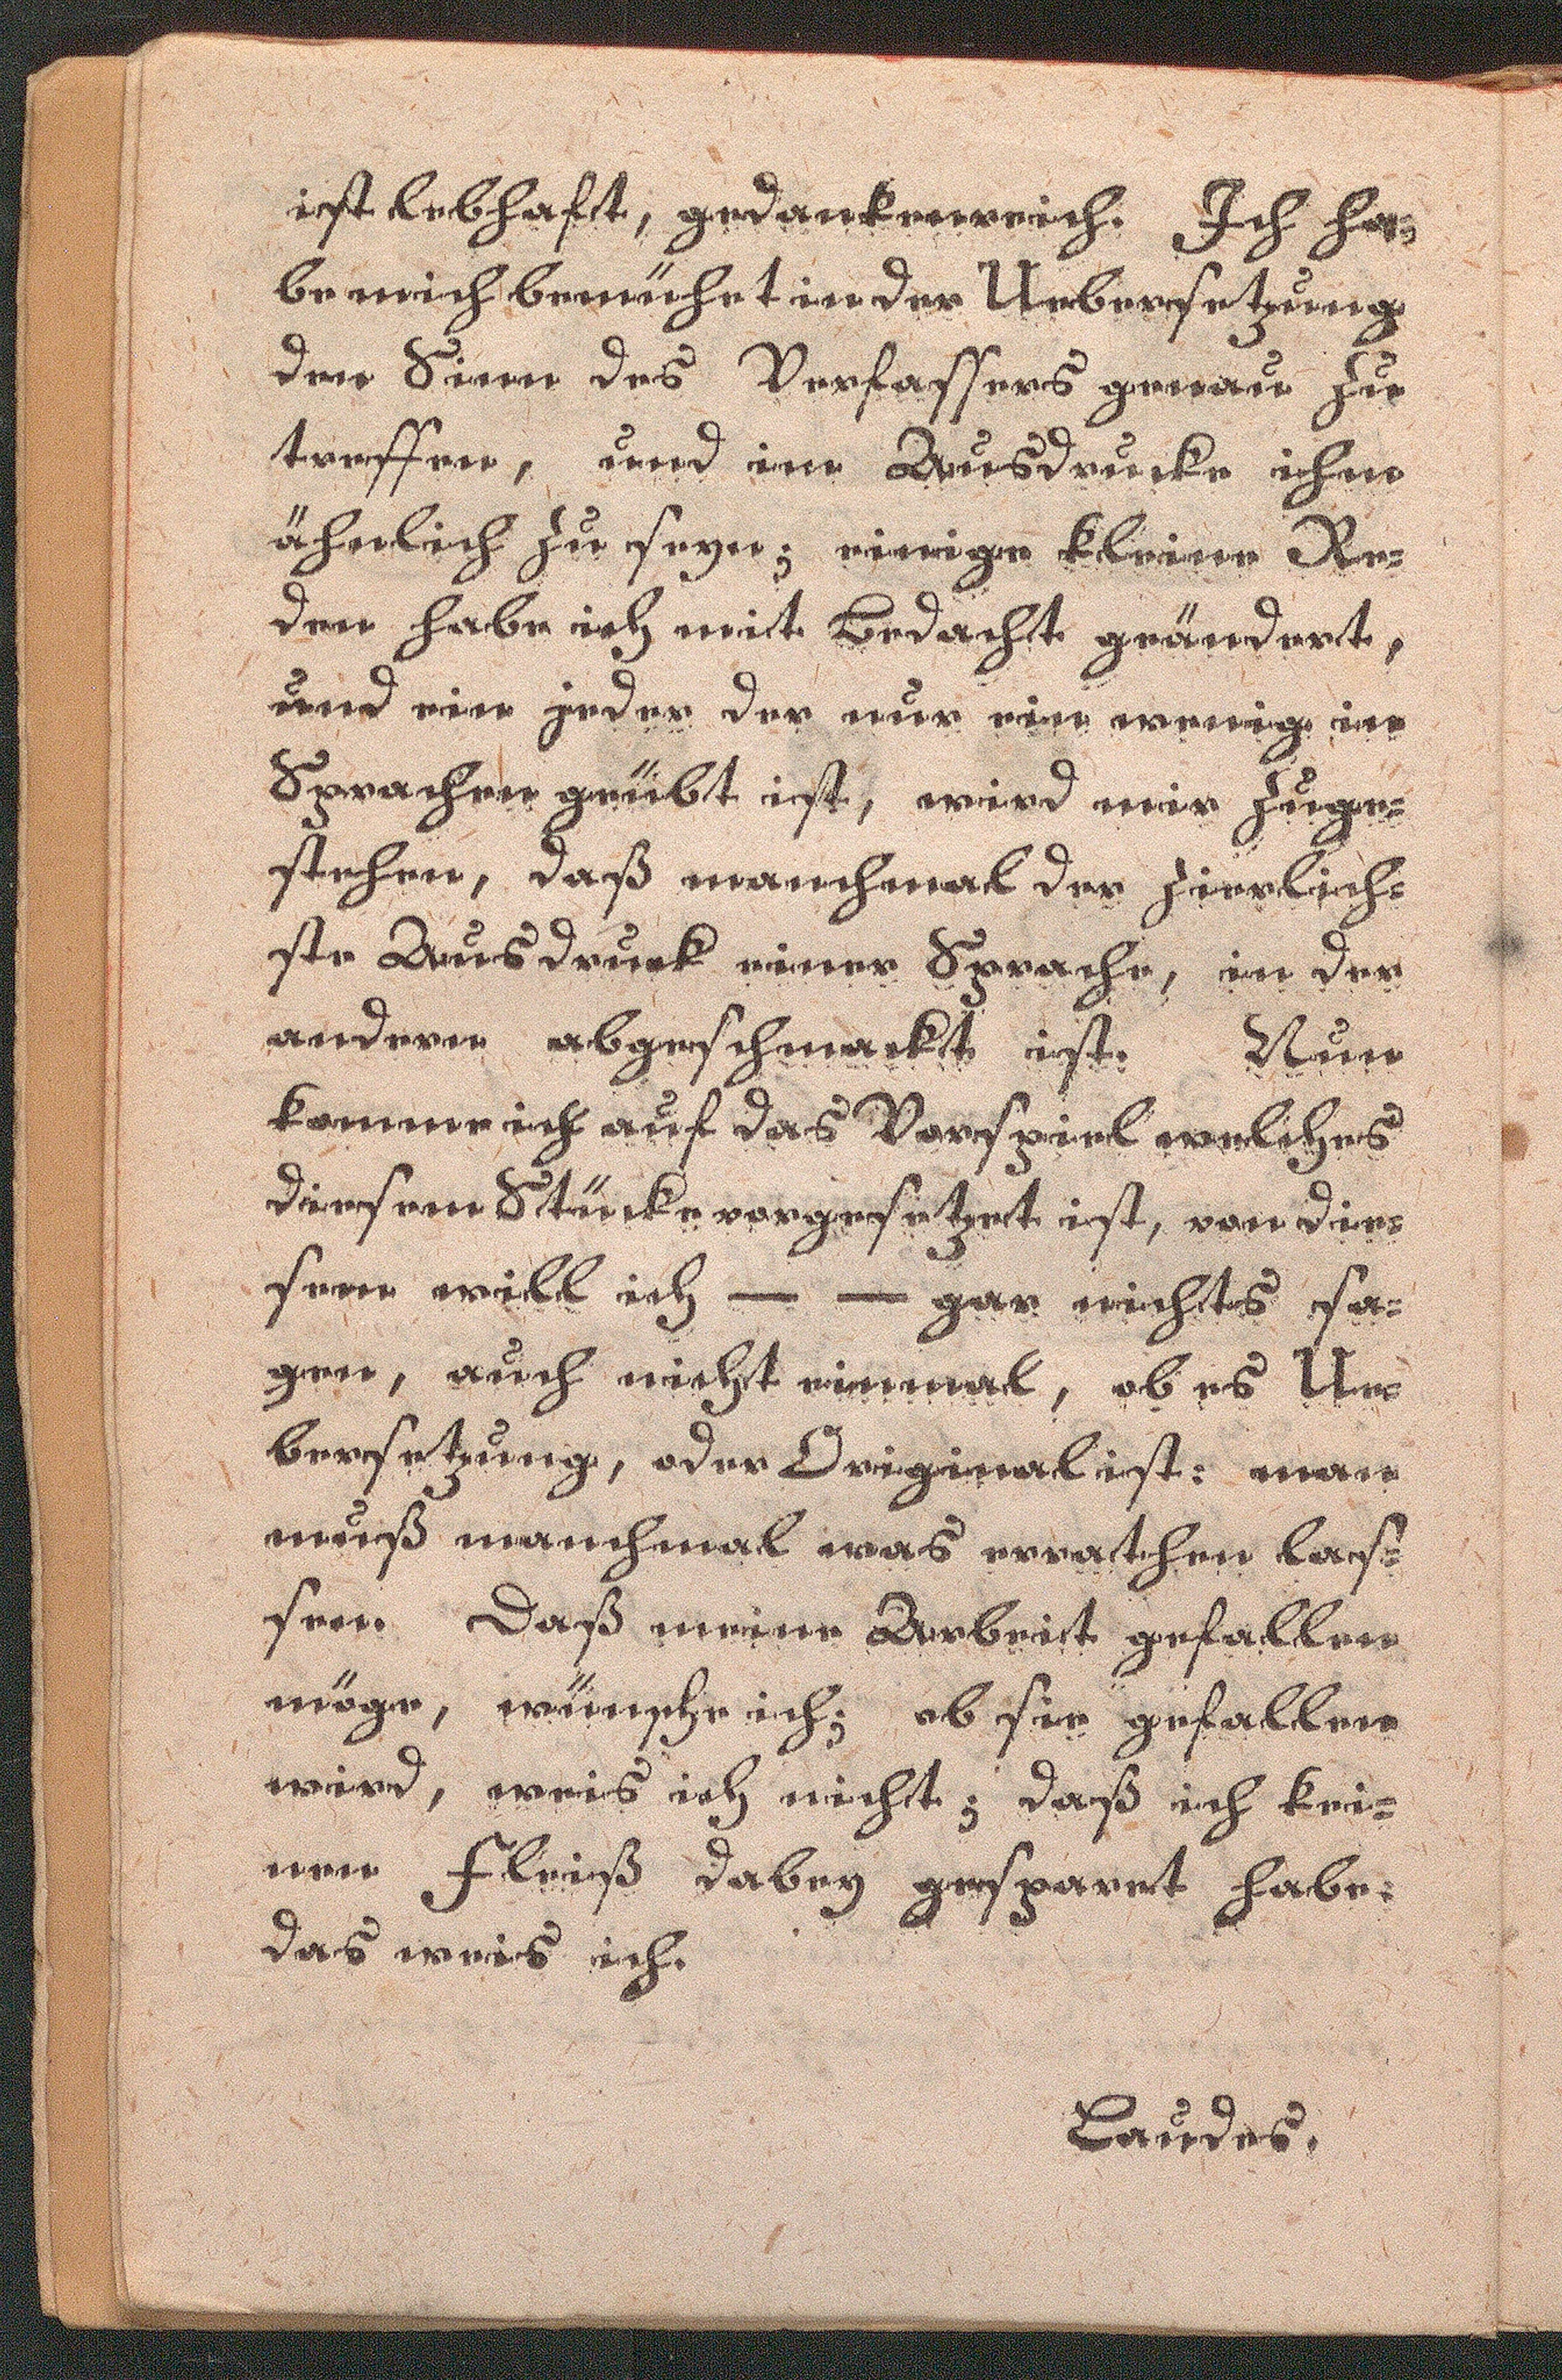 ist lebhaft, gedankenreich. Ich ha=
be mich bemühet in der Uebersetzung
den Sinn des Verfassers genau zu
treffen, und im Ausdrucke ihm
ähnlich zu seyn; einige kleine Re=
den habe ich mit Bedacht geändert,
und ein jeder der nur ein wenig in
Sprachen geübt ist, wird mir zuge=
stehen, daß manchmal der zierlich=
ste Ausdruck einer Sprache, in der
andern abgeschmackt ist. Nun
komme ich auf das Vorspiel welches
diesem Stücke vorgesetzet ist, von die=
sem will ich — — gar nichts sa=
gen, auch nicht einmal, ob es Ue=
bersetzung, oder Original ist: man
muß manchmal was errathen las=
sen. Daß meine Arbeit gefallen
möge, wünsche ich; ob sie gefallen
wird, weis ich nicht; daß ich kei=
nen Fleiß dabey gesparet habe:
das weis ich.
Laudes.